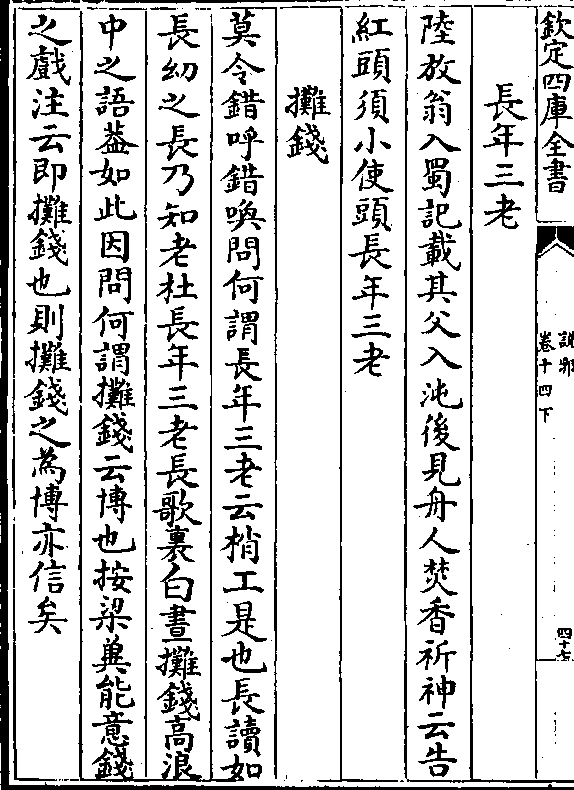 欽定四庫全書
說郛
卷十四下
四十七
長年三老
陸放翁入蜀記載其父入沌後見舟人焚香祈神云告
紅頭須小使頭長年三老
攤錢
莫令錯呼錯喚問何謂長年三老云梢工是也長讀如
長幼之長乃知老杜長年三老長歌裏白晝攤錢高浪
中之語葢如此因問何謂攤錢云博也按梁兾能意錢
之戲注云即攤錢也則攤錢之為博亦信矣